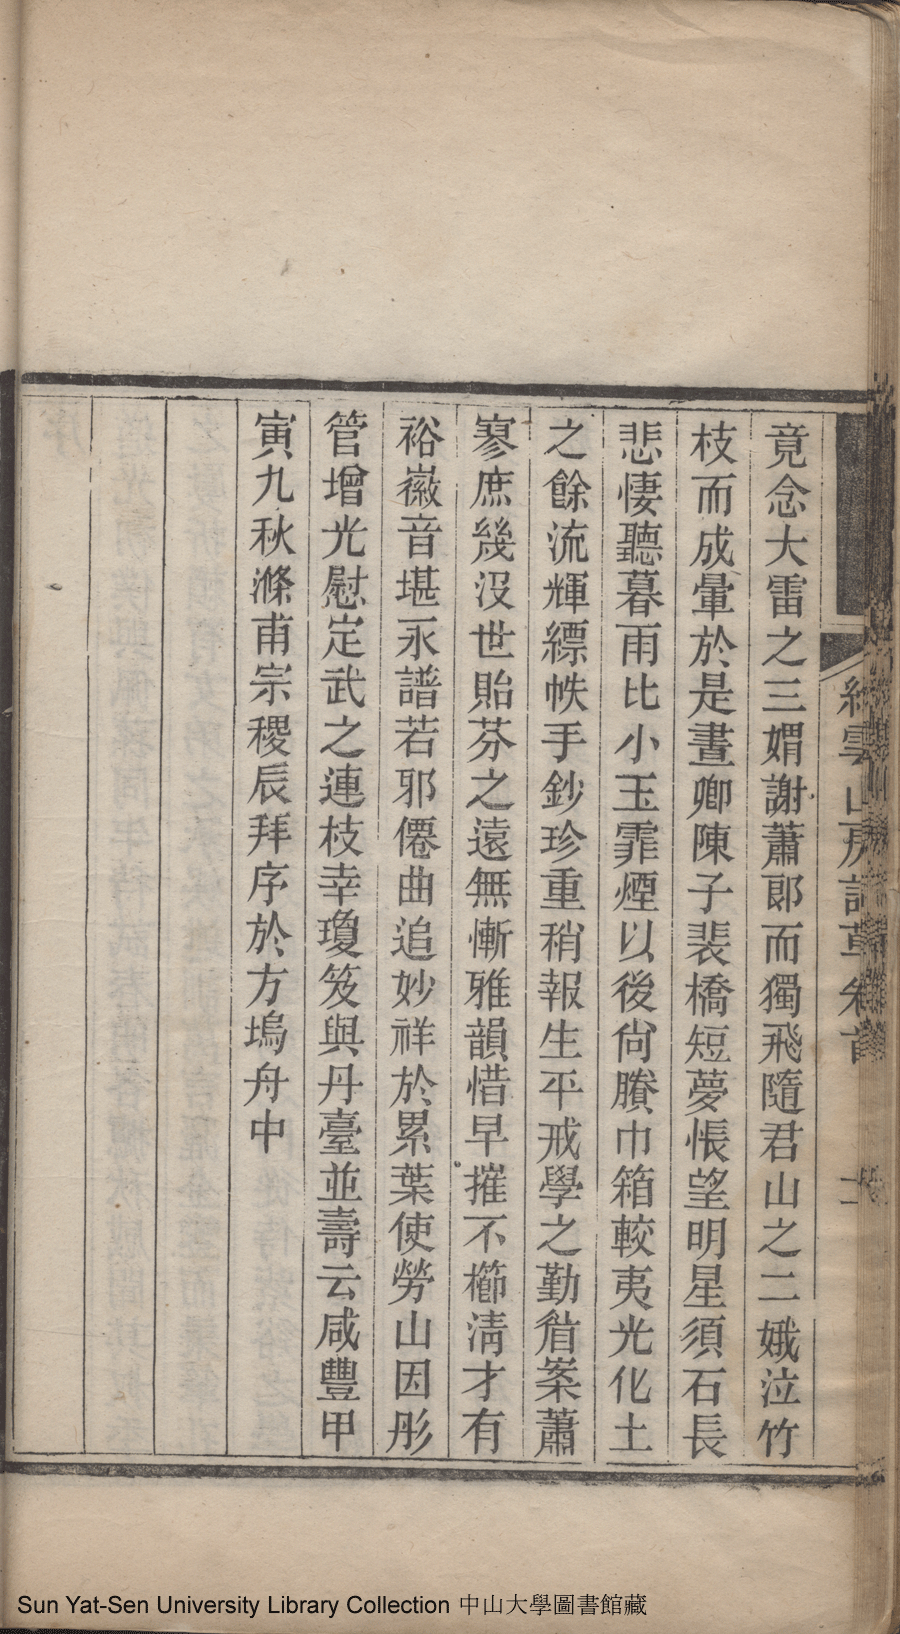 竟念大雷之三媦謝蕭郎而獨飛隨君山之二娥泣竹
枝而成暈於是晝卿陳子裴橋短夢悵望明星須石長
悲悽聽暮雨比小玉霏煙以後尙賸巾箱較夷光化土
之餘流輝縹帙手鈔珍重稍報生平戒學之勤眉案蕭
寥庶幾沒世貽芬之遠無慚雅韻惜早摧不櫛淸才有
裕徽音堪永譜若邪僊曲追妙祥於累葉使勞山因彤
管增光慰定武之連枝幸瓊笈與丹臺並壽云咸豐甲
寅九秋滌甫宗稷辰拜序於方塢舟中
雲山房詩草
Sun Yat-Sen University Library Collection 中山大學圖書館藏